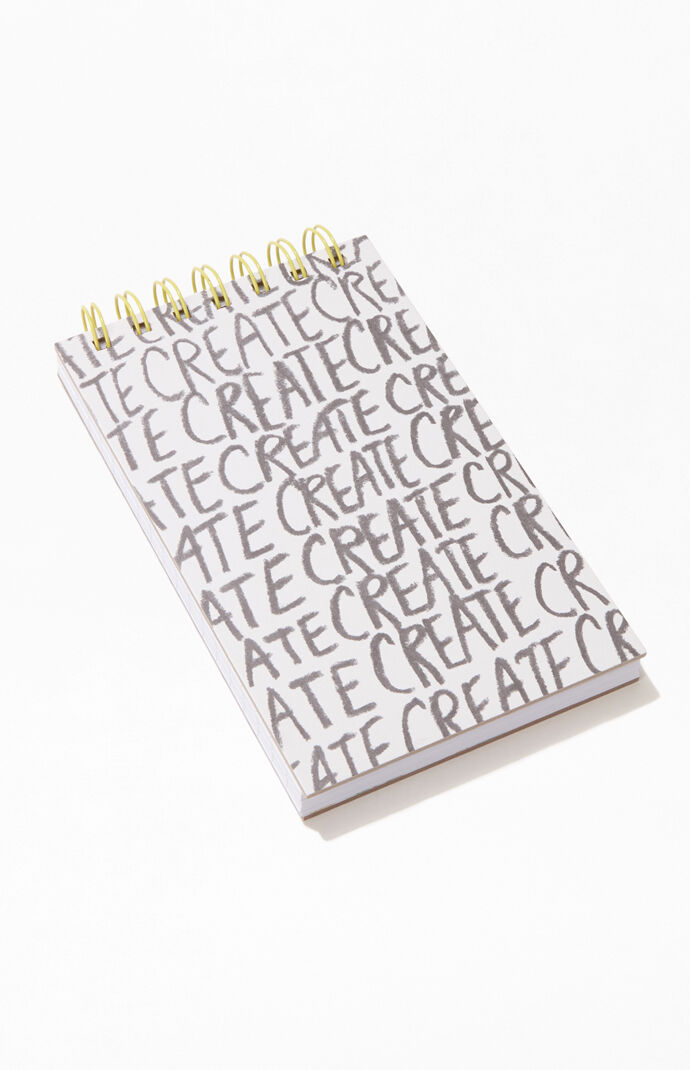 ATE CREATE CRE
TE CREATE CRE
TE CREATE CREA
ATE CREATE CRE
ATE CREATE CRE
ATE CREATE CR
ATE CREATE CR
ATE CREATE CR
ATE CREATE CR
ATE CREATE CR